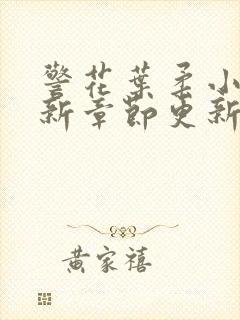 警花葉柔小
新章節更新
黃家禧